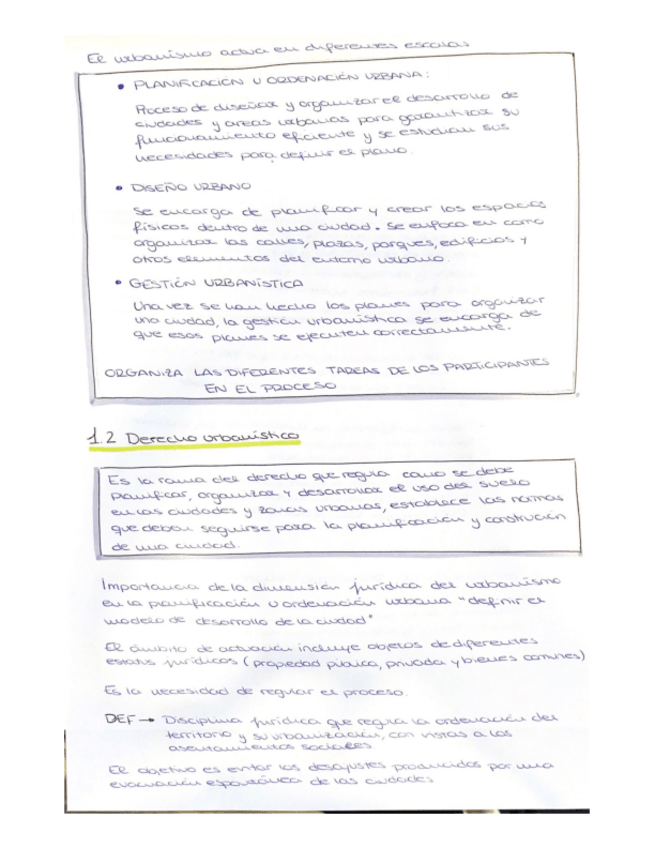 El urbanismo actua en diferentes escalas
• PLANIFICACIÓN U ORDENACIÓN URBANA:
Proceso de diseñar y organizar el desarrollo de
ciudades y areas urbanas para garantizar su
funcionamiento eficiente y se estudian sus
necesidades para definir el plano.
• DISEÑO URBANO
Se encarga de planificar y crear los espacios
físicos dentro de una ciudad. Se enfoca en como
organizar las calles, plazas, parques, edificios y
otros elementos del entorno urbano.
• GESTIÓN URBANÍSTICA
Una vez se han hecho los planes para organizar
una ciudad, la gestión urbanística se encarga de
que esos planes se ejecuten correctamente.
ORGANIZA LAS DIFERENTES TAREAS DE LOS PARTICIPANTES
EN EL PROCESO
1.2 Derecho urbanístico
Es la rama del derecho que regula como se debe
planificar, organizar y desarrollar el uso del suelo
en las ciudades y zonas urbanas, establece las normas
que deben seguirse para la planificación y construcción
de una ciudad.
Importancia de la dimensión jurídica del urbanismo
en la planificación u ordenación urbana "definir el
modelo de desarrollo de la ciudad"
El ámbito de actuación incluye objetos de diferentes
estatus jurídicos (propiedad pública, privada y bienes comunes)
Es la necesidad de regular el proceso.
DEF → Disciplina jurídica que regula la ordenación del
territorio y su urbanización, con vistas a los
asentamientos sociales
El objetivo es evitar los desajustes producidos por una
evacuación espontánea de las ciudades